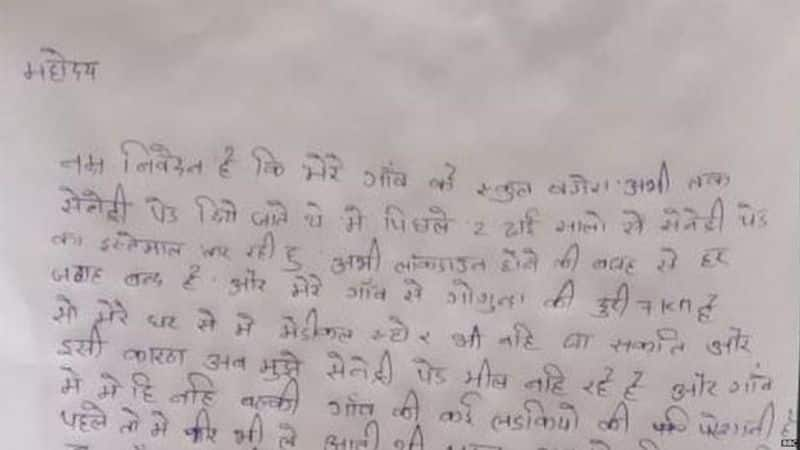 महोदय
नम्र निवेदन है कि मेरे गाँव के स्कुल वगेरा अभी तक
सेनेट्री पेड दिये जाते थे मे पिछले 2 ढाई सालो से सेनेट्री पेड
का इस्तेमाल कर रही हु अभी लॉकडाउन होने की वजह से हर
जगह बन्द है और मेरे गाँव से गोगुन्दा की दुरी 7 km है
सो मेरे घर से मे मेडीकल स्टोर भी नहि जा सकति और
इसी कारण अब मुझे सेनेट्री पेड मील नहि रहे है और गाँव
मे मे हि नहि बल्की गाँव की कई लडकियो की परेशानी है
पहले तो मे फीर भी ले आती थी
BBC